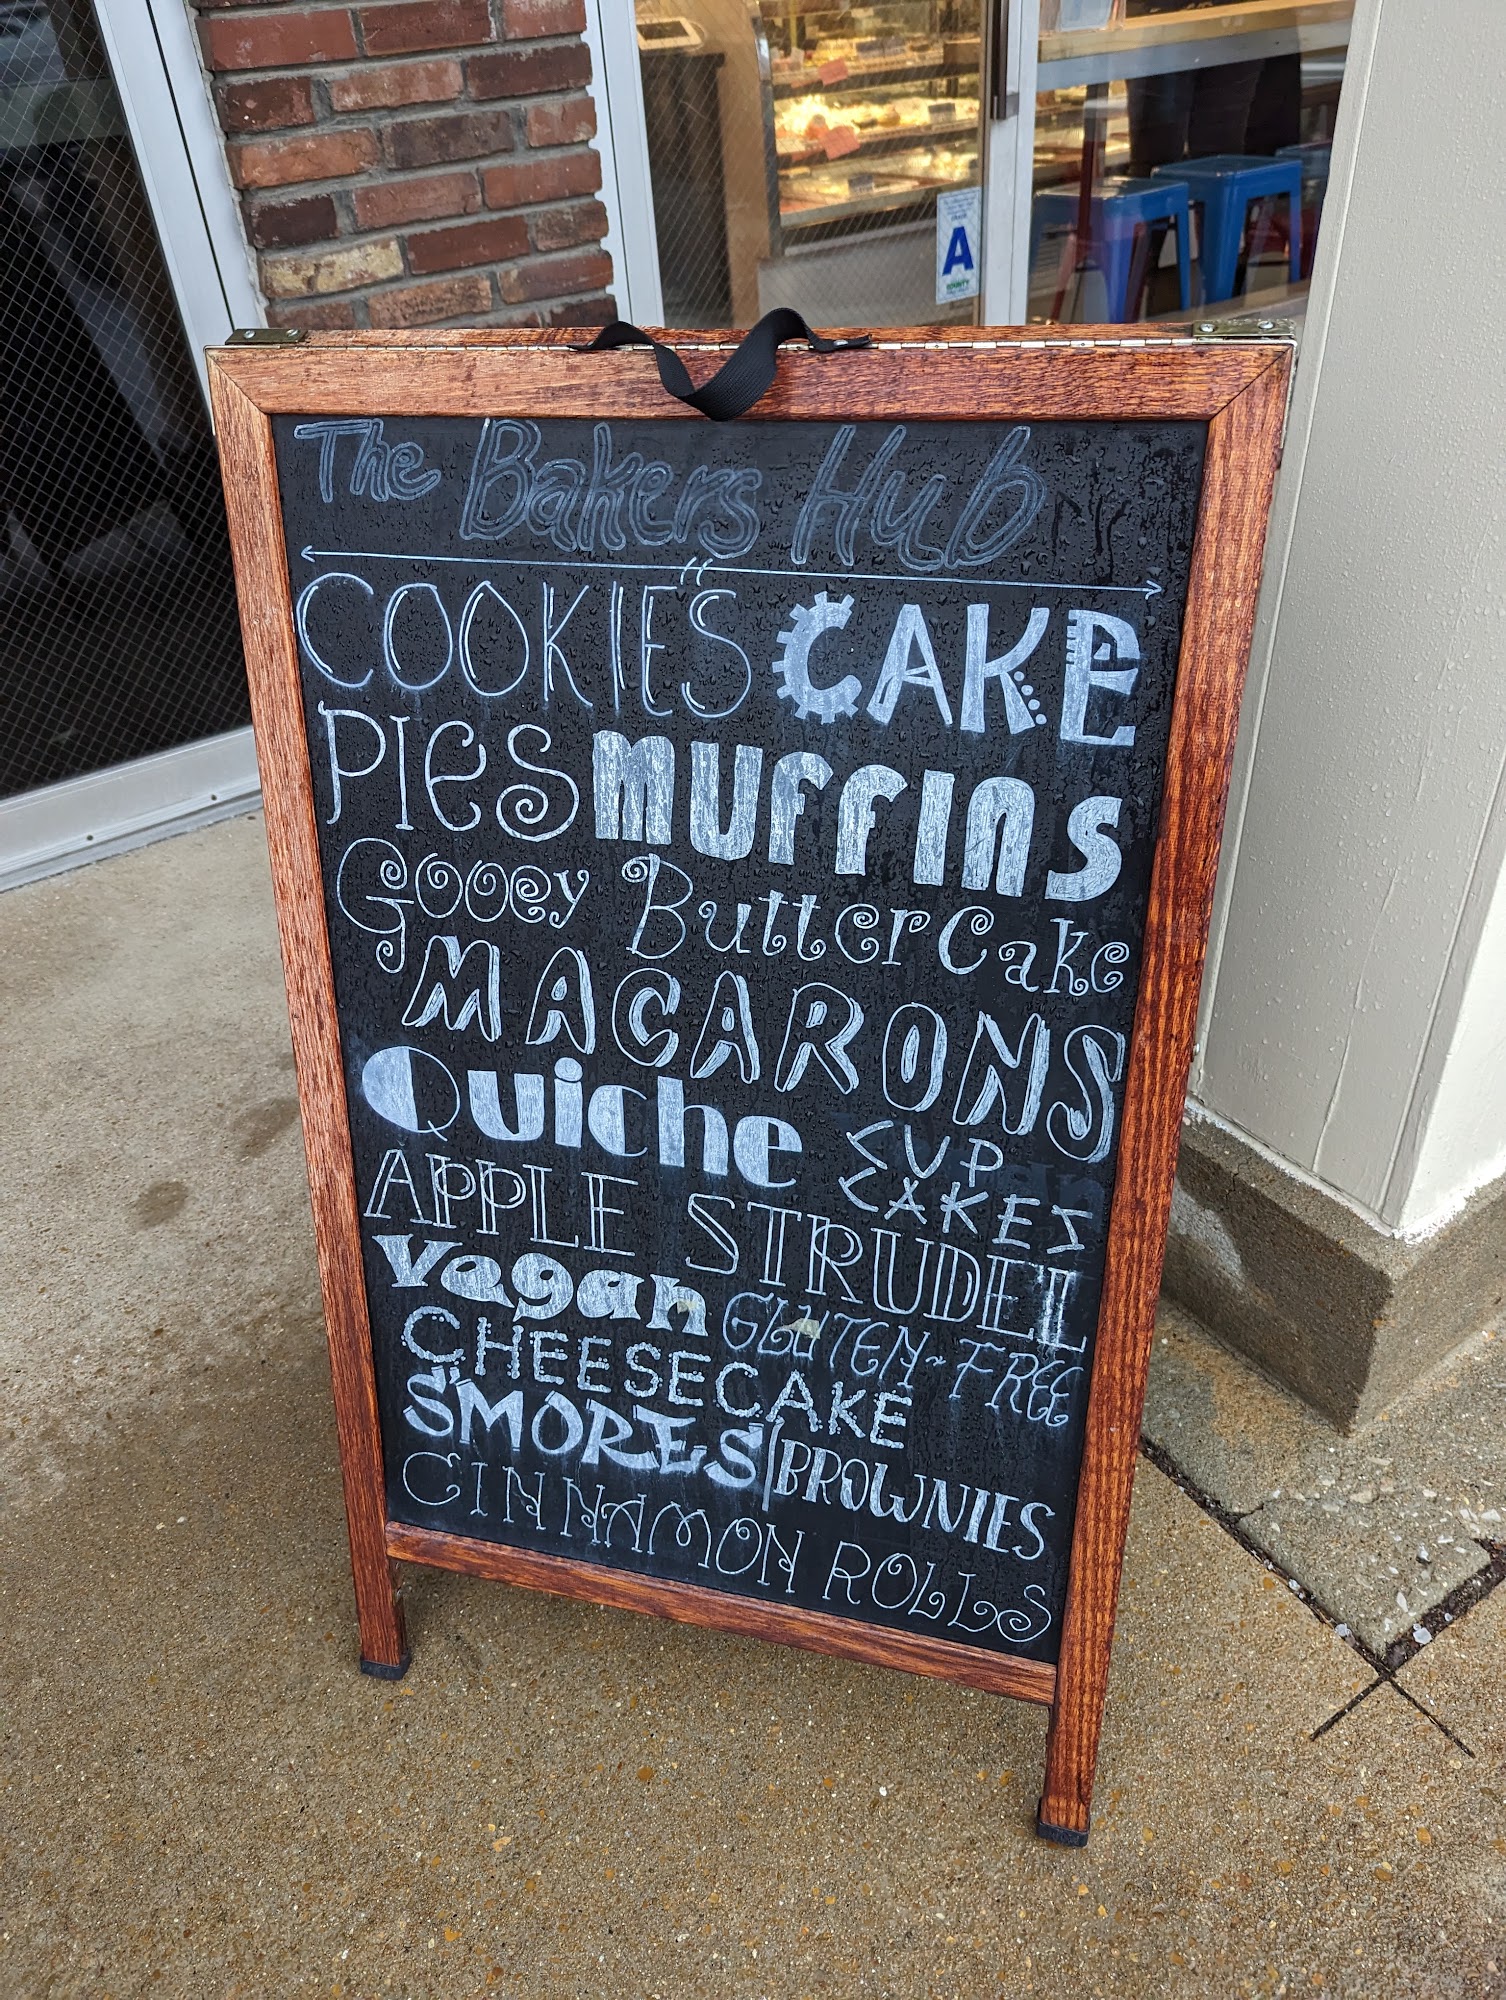 GRADE
A
COUNTY
The Bakers Hub
COOKIES CAKE
PIES MUFFINS
Gooey ButterCake
MACARONS
Quiche CUP CAKES
APPLE STRUDEL
Vegan GLUTEN-FREE
CHEESECAKE
S'MORES BROWNIES
CINNAMON ROLLS